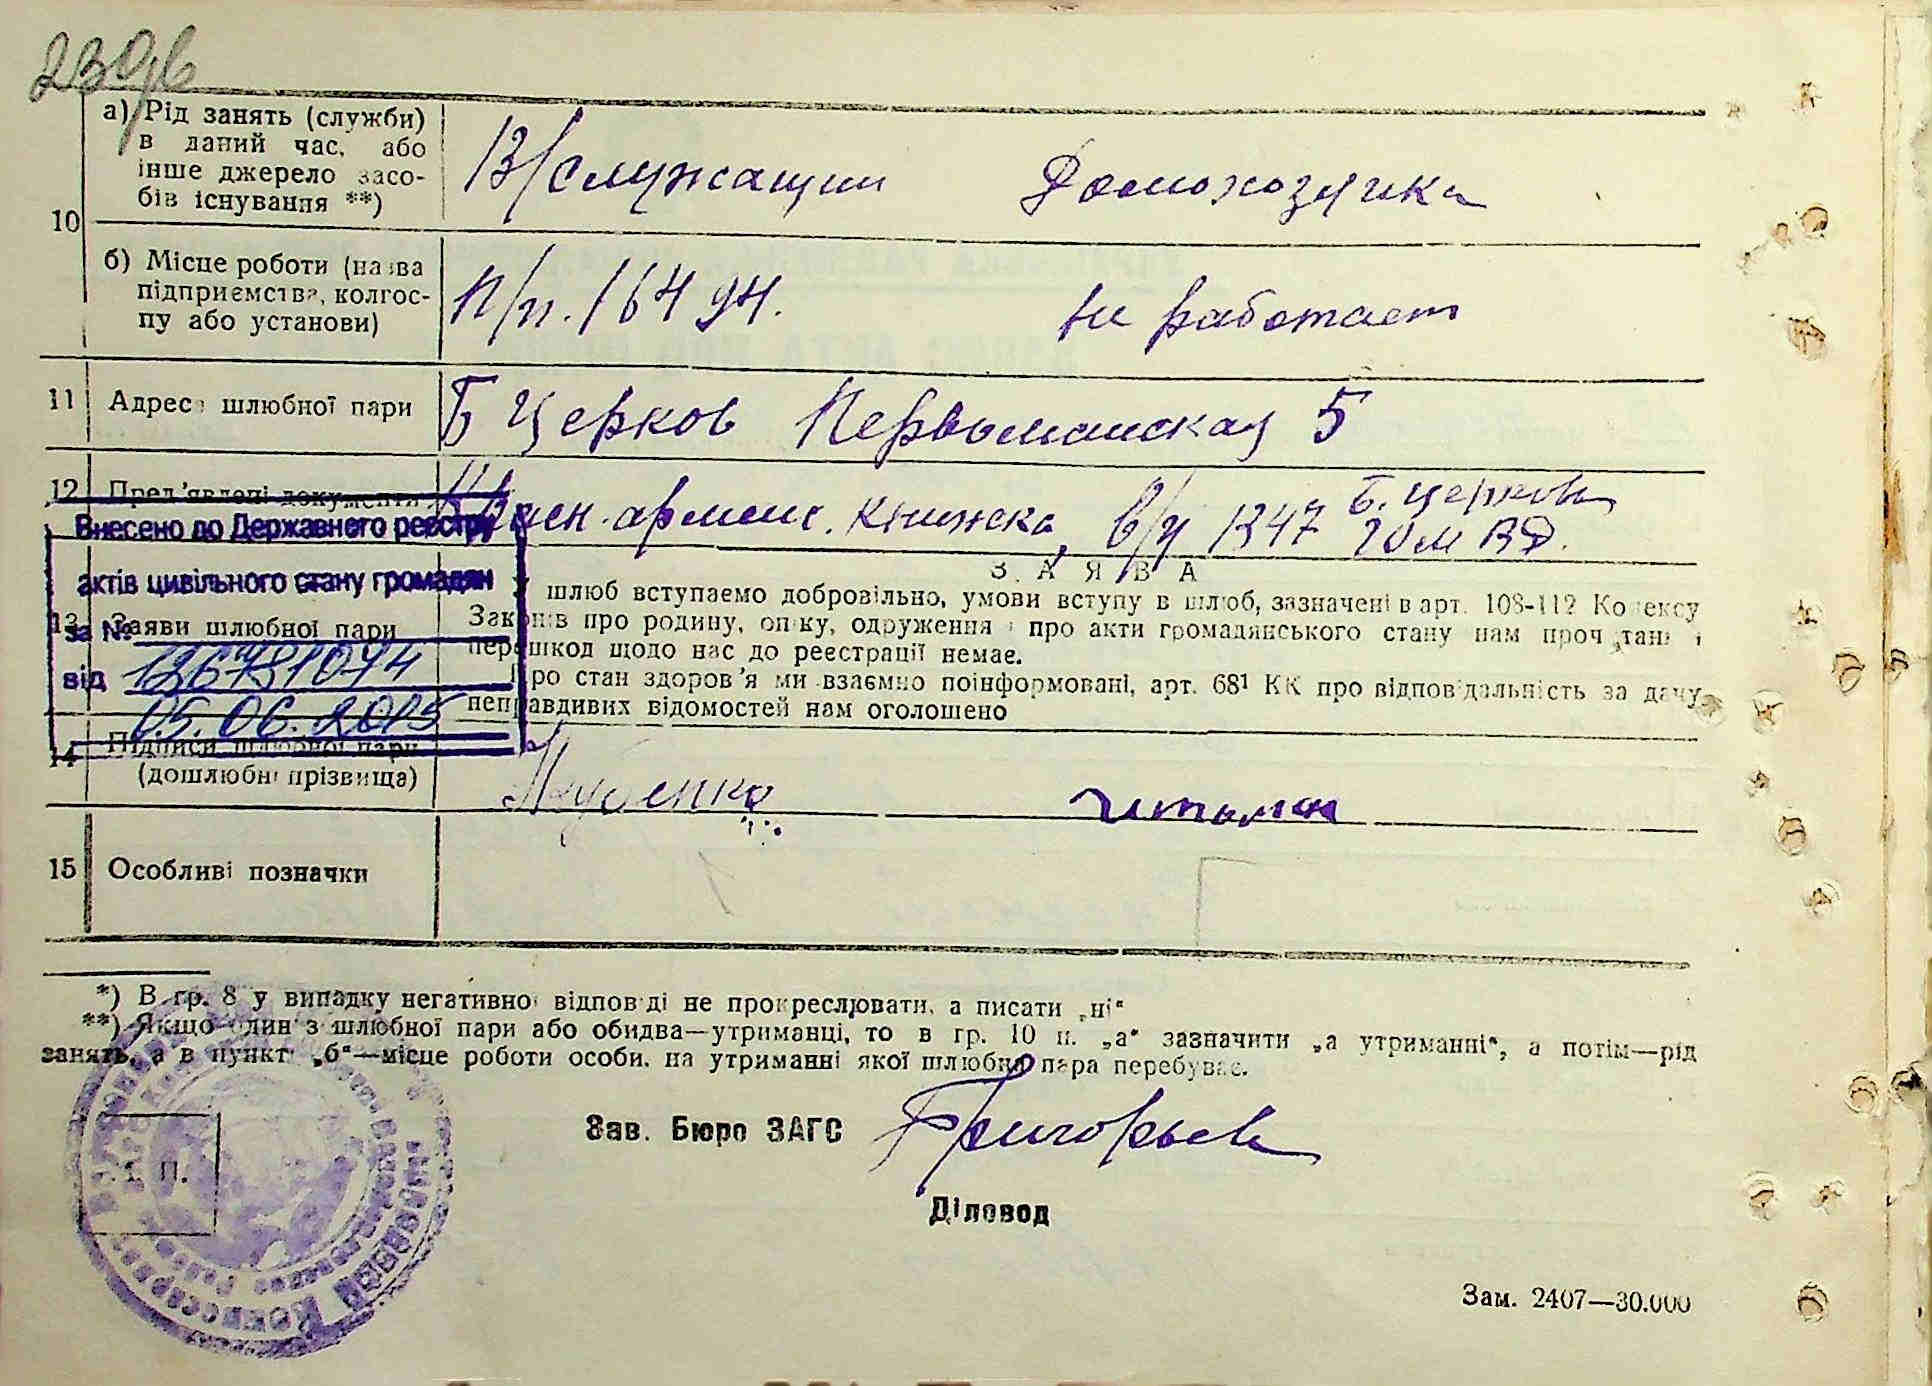 а) Рід занять (служби)
в даний час, або
інше джерело засо-
бів існування **)
В/служащий Домохозяйка
10
б) Місце роботи (назва
підприємства, колгос-
пу або установи)
п/п. 16494. не работает
11 Адреса шлюбної пари Б Церков Первомайская 5
12 Пред'явлені документи книжка, в/у 1347 Б. Церков
Внесено до Державного реєстру
актів цивільного стану громадян
за №
від
05.06.2015
ЗАЯВА
13 Заяви шлюбної пари
У шлюб вступаємо добровільно, умови вступу в шлюб, зазначені в арт. 108-112 Кодексу
Законів про родину, опіку, одруження і про акти громадянського стану нам прочитані і
перешкод щодо нас до реєстрації немає.
Про стан здоров'я ми взаємно поінформовані, арт. 68¹ КК про відповідальність за дачу
неправдивих відомостей нам оголошено
14 Підписи шлюбної пари
(дошлюбні прізвища)
15 Особливі позначки
*) В гр. 8 у випадку негативної відповіді не прокреслювати, а писати „ні“
**) Якщо один з шлюбної пари або обидва—утриманці, то в гр. 10 п. „а“ зазначити „а утриманні“, а потім—рід
занять, а в пункті „б“—місце роботи особи, на утриманні якої шлюбна пара перебуває.
Зав. Бюро ЗАГС Григорьева
Діловод
М. П.
Зам. 2407—30.000